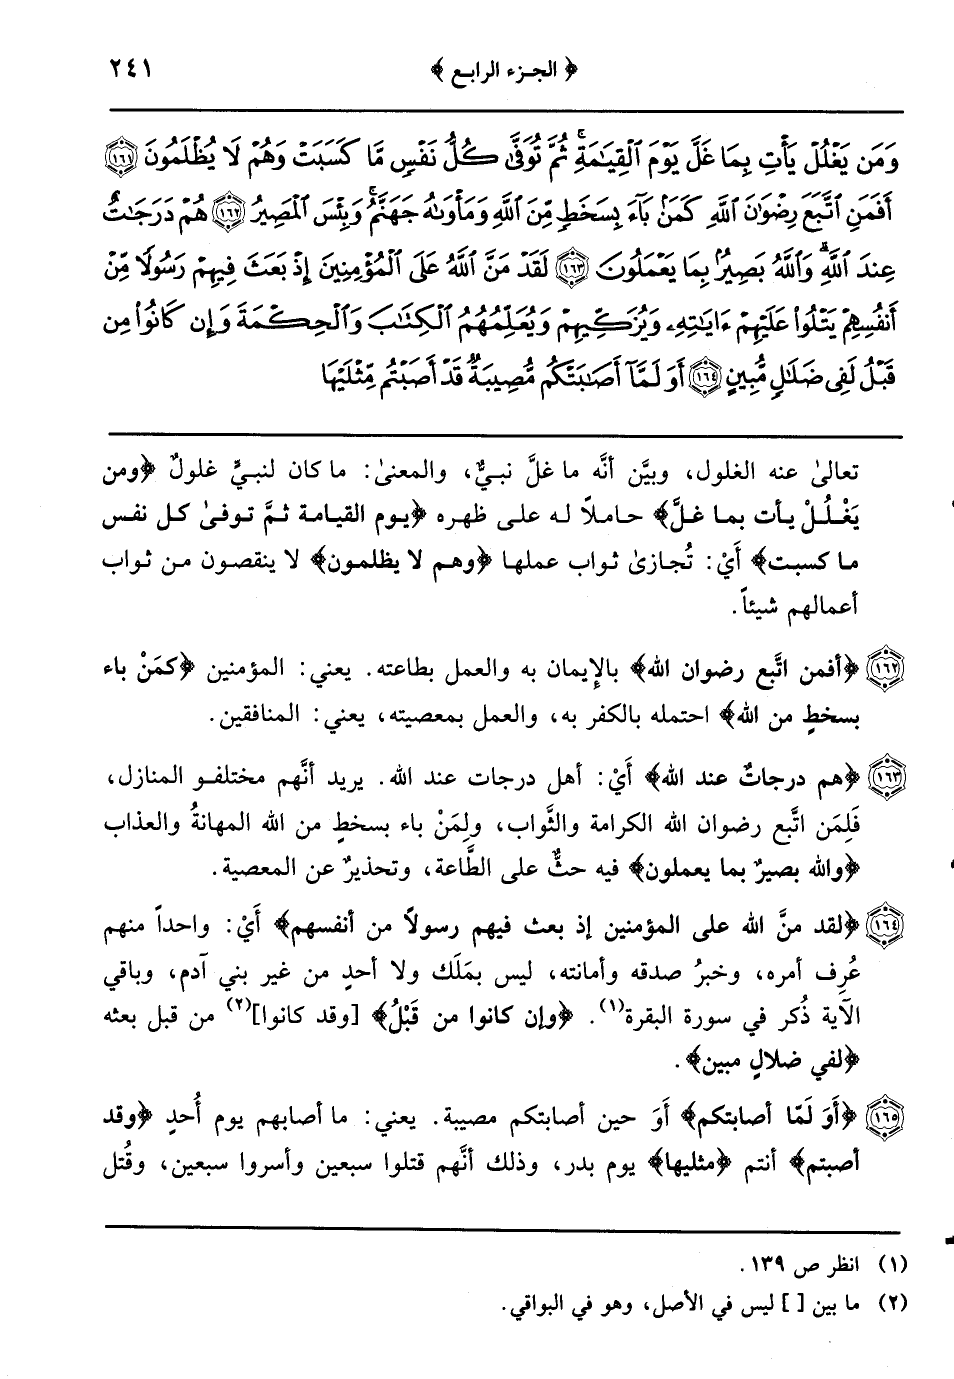 ﴿ الجزء الرابع ﴾ ٢٤١
وَمَن يَغْلُلْ يَأْتِ بِمَا غَلَّ يَوْمَ ٱلْقِيَٰمَةِۚ ثُمَّ تُوَفَّىٰ كُلُّ نَفْسٍ مَّا كَسَبَتْ وَهُمْ لَا يُظْلَمُونَ ١٦١
أَفَمَنِ ٱتَّبَعَ رِضْوَٰنَ ٱللَّهِ كَمَنۢ بَآءَ بِسَخَطٍ مِّنَ ٱللَّهِ وَمَأْوَىٰهُ جَهَنَّمُۚ وَبِئْسَ ٱلْمَصِيرُ ١٦٢ هُمْ دَرَجَٰتٌ
عِندَ ٱللَّهِۗ وَٱللَّهُ بَصِيرُۢ بِمَا يَعْمَلُونَ ١٦٣ لَقَدْ مَنَّ ٱللَّهُ عَلَى ٱلْمُؤْمِنِينَ إِذْ بَعَثَ فِيهِمْ رَسُولًا مِّنْ
أَنفُسِهِمْ يَتْلُوا۟ عَلَيْهِمْ ءَايَٰتِهِۦ وَيُزَكِّيهِمْ وَيُعَلِّمُهُمُ ٱلْكِتَٰبَ وَٱلْحِكْمَةَ وَإِن كَانُوا۟ مِن
قَبْلُ لَفِى ضَلَٰلٍ مُّبِينٍ ١٦٤ أَوَلَمَّآ أَصَٰبَتْكُم مُّصِيبَةٌ قَدْ أَصَبْتُم مِّثْلَيْهَا
تعالىٰ عنه الغلول، وبيَّن أنَّه ما غلَّ نبيٌّ، والمعنىٰ: ما كان لنبيٍّ غلولٌ ﴿ومن
يَغْلُلْ يأت بما غلَّ﴾ حاملاً له على ظهره ﴿يوم القيامة ثمَّ توفىٰ كل نفس
ما كسبت﴾ أَيْ: تُجازىٰ ثواب عملها ﴿وهم لا يظلمون﴾ لا ينقصون من ثواب
أعمالهم شيئاً.
١٦٢ ﴿أفمن اتَّبع رضوان الله﴾ بالإِيمان به والعمل بطاعته. يعني: المؤمنين ﴿كمَنْ باء
بسخطٍ من الله﴾ احتمله بالكفر به، والعمل بمعصيته، يعني: المنافقين.
١٦٣ ﴿هم درجاتٌ عند الله﴾ أَيْ: أهل درجات عند الله. يريد أنَّهم مختلفو المنازل،
فَلِمَن اتَّبع رضوان الله الكرامة والثَّواب، ولِمَنْ باء بسخطٍ من الله المهانةُ والعذاب
﴿والله بصيرٌ بما يعملون﴾ فيه حثٌّ على الطَّاعة، وتحذيرٌ عن المعصية.
١٦٤ ﴿لقد منَّ الله على المؤمنين إذ بعث فيهم رسولاً من أنفسهم﴾ أَيْ: واحداً منهم
عُرِف أمره، وخبرُ صدقه وأمانته، ليس بمَلَك ولا أحدٍ من غير بني آدم، وباقي
الآية ذُكر في سورة البقرة(١). ﴿وإن كانوا من قَبْلُ﴾ [وقد كانوا](٢) من قبل بعثه
﴿لفي ضلالٍ مبين﴾.
١٦٥ ﴿أَوَ لَمّا أصابتكم﴾ أَوَ حين أصابتكم مصيبة. يعني: ما أصابهم يوم أُحدٍ ﴿وقد
أصبتم﴾ أنتم ﴿مثليها﴾ يوم بدر، وذلك أنَّهم قتلوا سبعين وأسروا سبعين، وقُتل
(١) انظر ص ١٣٩.
(٢) ما بين [ ] ليس في الأصل، وهو في البواقي.